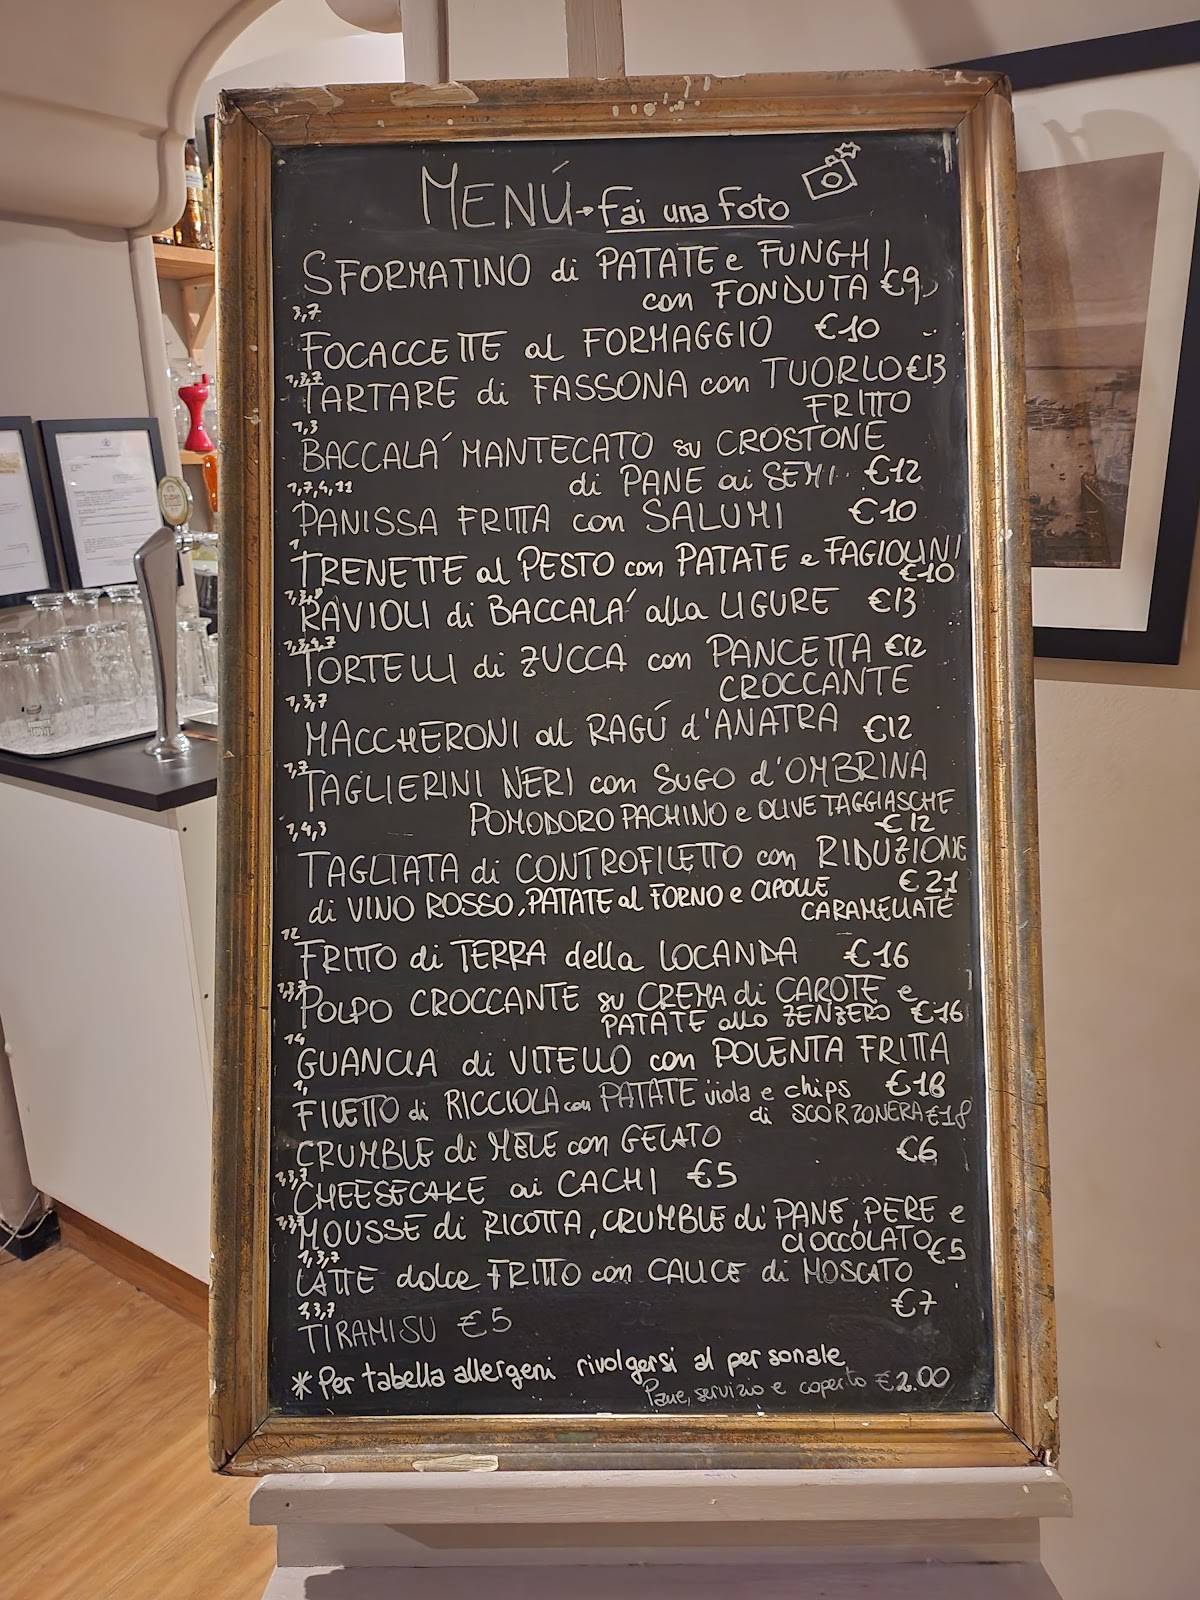 MENÚ → Fai una Foto
SFORMATINO di PATATE e FUNGHI
con FONDUTA €9
3,7
FOCACCETTE al FORMAGGIO €10
1,3,7
TARTARE di FASSONA con TUORLO €13
FRITTO
1,3
BACCALA´ MANTECATO su CROSTONE
di PANE ai SEMI €12
1,7,4,11
PANISSA FRITTA con SALUMI €10
1
TRENETTE al PESTO con PATATE e FAGIOLINI
€10
RAVIOLI di BACCALA´ alla LIGURE €13
1,3,4,7
TORTELLI di ZUCCA con PANCETTA €12
CROCCANTE
1,3,7
MACCHERONI al RAGÚ d'ANATRA €12
1,7
TAGLIERINI NERI con SUGO d'OMBRINA
POMODORO PACHINO e OLIVE TAGGIASCHE
€12
1,4,3
TAGLIATA di CONTROFILETTO con RIDUZIONE
€21
di VINO ROSSO, PATATE al FORNO e CIPOLLE
CARAMELLATE
12
FRITTO di TERRA della LOCANDA €16
1,3,7
POLPO CROCCANTE su CREMA di CAROTE e
PATATE allo ZENZERO €16
14
GUANCIA di VITELLO con POLENTA FRITTA
€18
1,
FILETTO di RICCIOLA con PATATE viola e chips
di SCORZONERA €18
CRUMBLE di MELE con GELATO €6
1,3,7
CHEESECAKE ai CACHI €5
1,3,7
MOUSSE di RICOTTA, CRUMBLE di PANE, PERE e
CIOCCOLATO €5
1,3,7
LATTE dolce FRITTO con CALICE di MOSCATO
€7
1,3,7
TIRAMISU €5
* Per tabella allergeni rivolgersi al personale
Pane, servizio e coperto €2.00